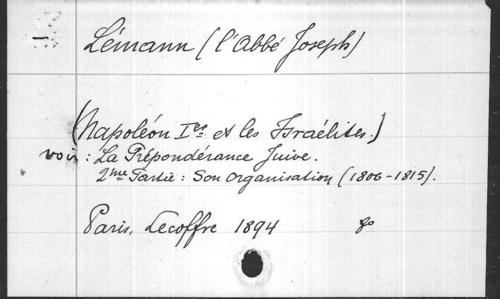 Lémann (l'abbé Joseph)
(Napoléon Ier et les Israélites.)
voir : La Prépondérance Juive.
2me Partie : Son organisation (1806-1815).
Paris, Lecoffre 1894 8o